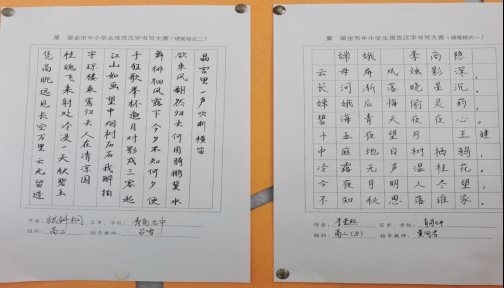 第 届全市中小学生规范汉字书写大赛（硬笔格式二）
凭高眺远见长空万里云无留迹
桂魄飞来射处冷浸一天秋碧玉
宇琼楼乘鸾来去人在清凉国
江山如画望中烟树历历我醉拍
手狂歌举杯邀月对影成三客起
舞徘徊风露下今夕不知何夕便
欲乘风翻然归去何用骑鹏翼水
晶宫里一声吹断横笛
作者： 县市、学校：
组别：高二 指导教师：
第 届全市中小学生规范汉字书写大赛（硬笔格式一）
嫦娥 李商隐
云母屏风烛影深，
长河渐落晓星沉。
嫦娥应悔偷灵药，
碧海青天夜夜心。
十五夜望月 王建
中庭地白树栖鸦，
冷露无声湿桂花。
今夜月明人尽望，
不知秋思落谁家。
作者： 县市、学校：
组别：高二（8） 指导教师：